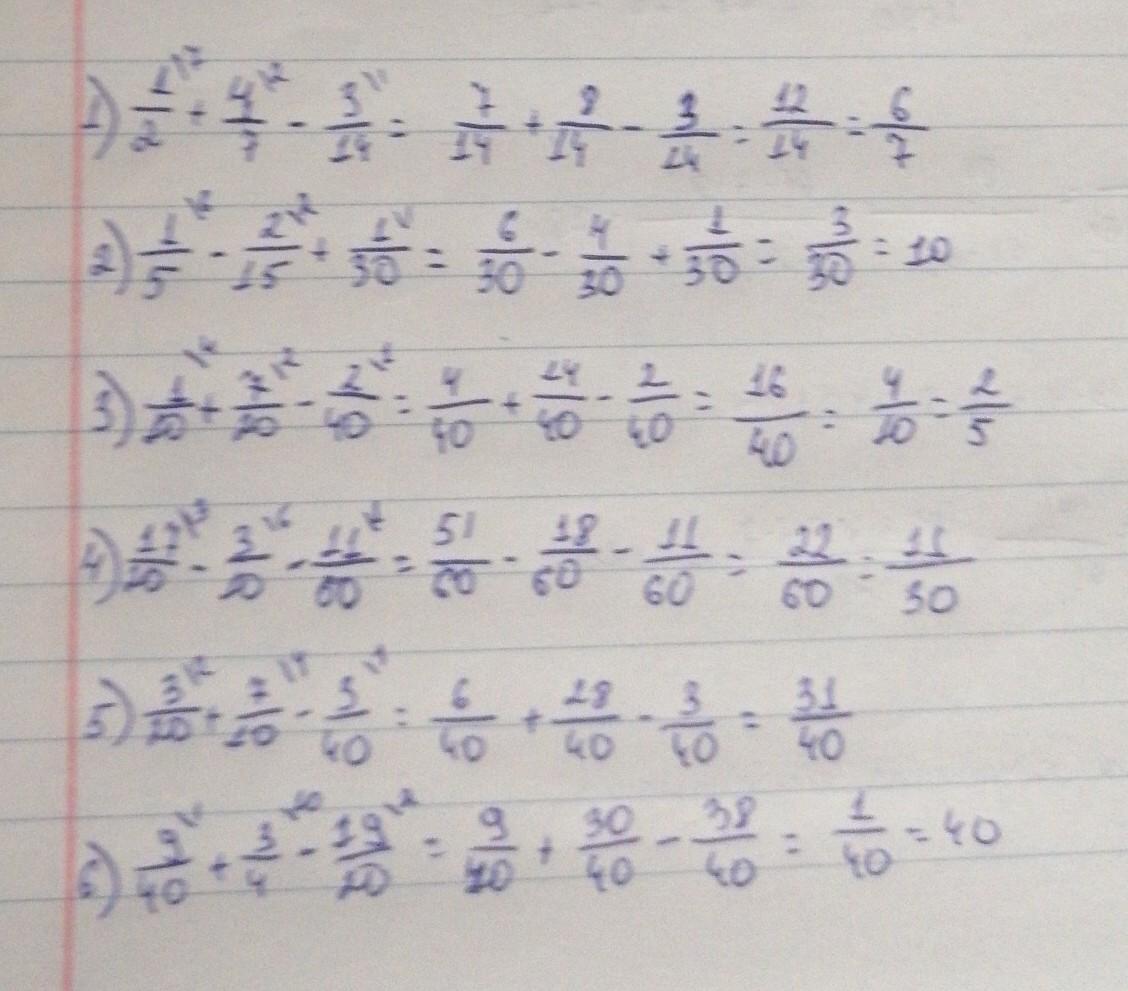 1) 1/2 + 4/7 - 3/14 = 7/14 + 8/14 - 3/14 = 12/14 = 6/7
2) 1/5 - 2/15 + 1/30 = 6/30 - 4/30 + 1/30 = 3/30 = 10
3) 1/10 + 7/20 - 2/40 = 4/40 + 14/40 - 2/40 = 16/40 = 4/10 = 2/5
4) 17/20 - 3/10 - 11/60 = 51/60 - 18/60 - 11/60 = 22/60 = 11/30
5) 3/20 + 7/10 - 3/40 = 6/40 + 28/40 - 3/40 = 31/40
6) 9/40 + 3/4 - 19/20 = 9/40 + 30/40 - 38/40 = 1/40 = 40